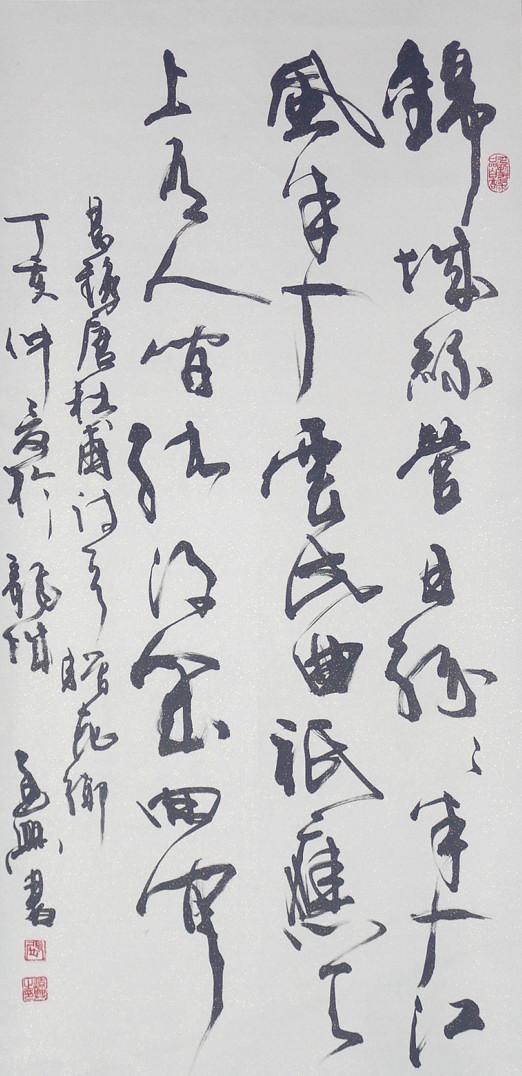 錦城絲管日紛〻半入江
風半入雲此曲祇應天
上有人間能得幾回聞
錄唐杜甫詩 贈花卿
丁亥仲夏於龍城 書